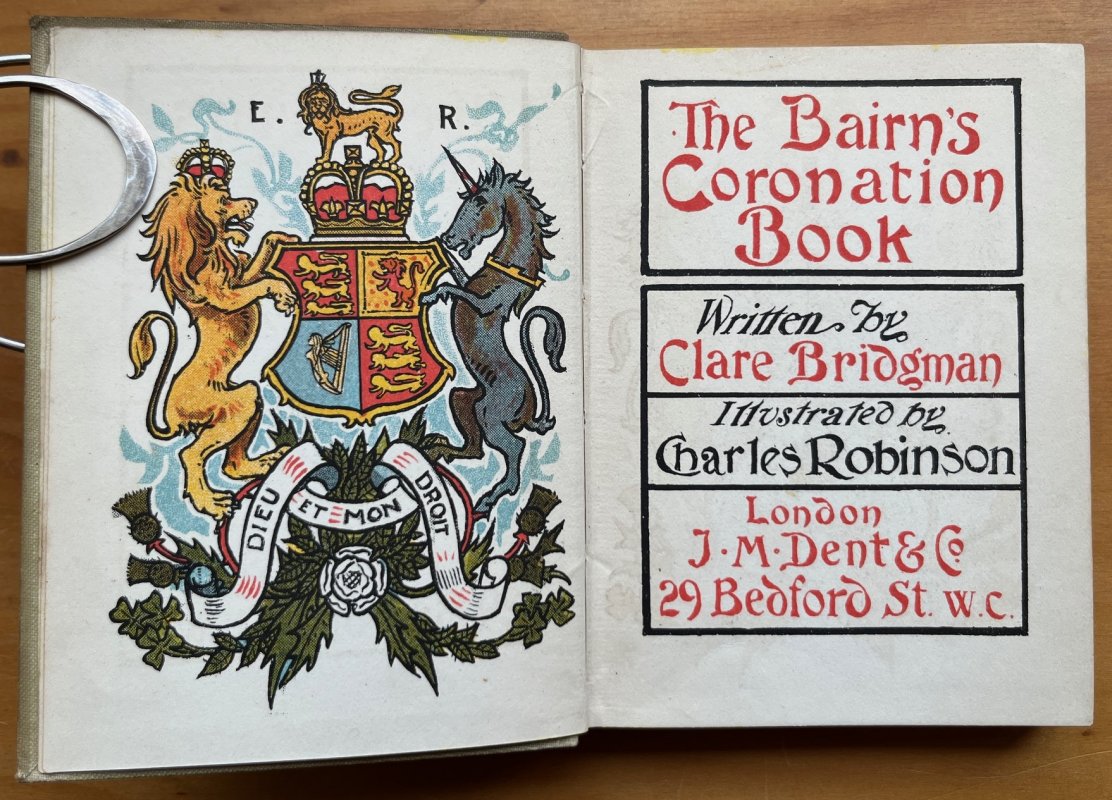 E. R.
DIEU ET MON DROIT
The Bairn's
Coronation
Book
Written by
Clare Bridgman
Illustrated by
Charles Robinson
London
J. M. Dent & Co.
29 Bedford St. W.C.